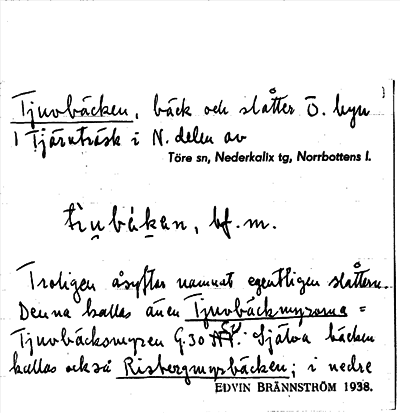 Tjuvbäcken, bäck och slåtter Ö. byn
i Tjärnträsk i N. delen av
Töre sn, Nederkalix tg, Norrbottens l.
bf. m.
Troligen åsyftar namnet egentligen slåttern.
Denna kallas även Tjuvbäckmyrarna =
Tjuvbäcksmyren G. 30 Själva bäcken
kallas också Risbergmyrbäcken; i nedre
EDVIN BRÄNNSTRÖM 1938.